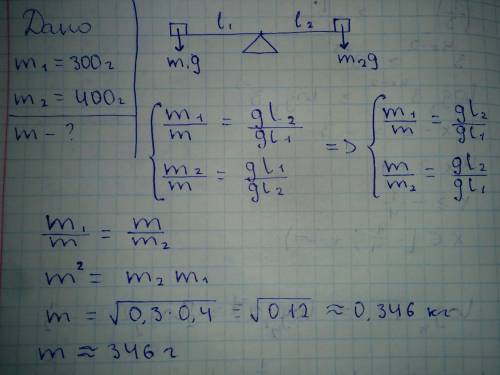 Дано
m₁ = 300г
m₂ = 400г
m - ?
l₁ l₂
m₁g m₂g
{ m₁/m = gl₂/gl₁ => { m₁/m = gl₂/gl₁
{ m₂/m = gl₁/gl₂ { m/m₂ = gl₂/gl₁
m₁/m = m/m₂
m² = m₂ m₁
m = √0,3·0,4 = √0,12 ≈ 0,346 кг
m ≈ 346 г